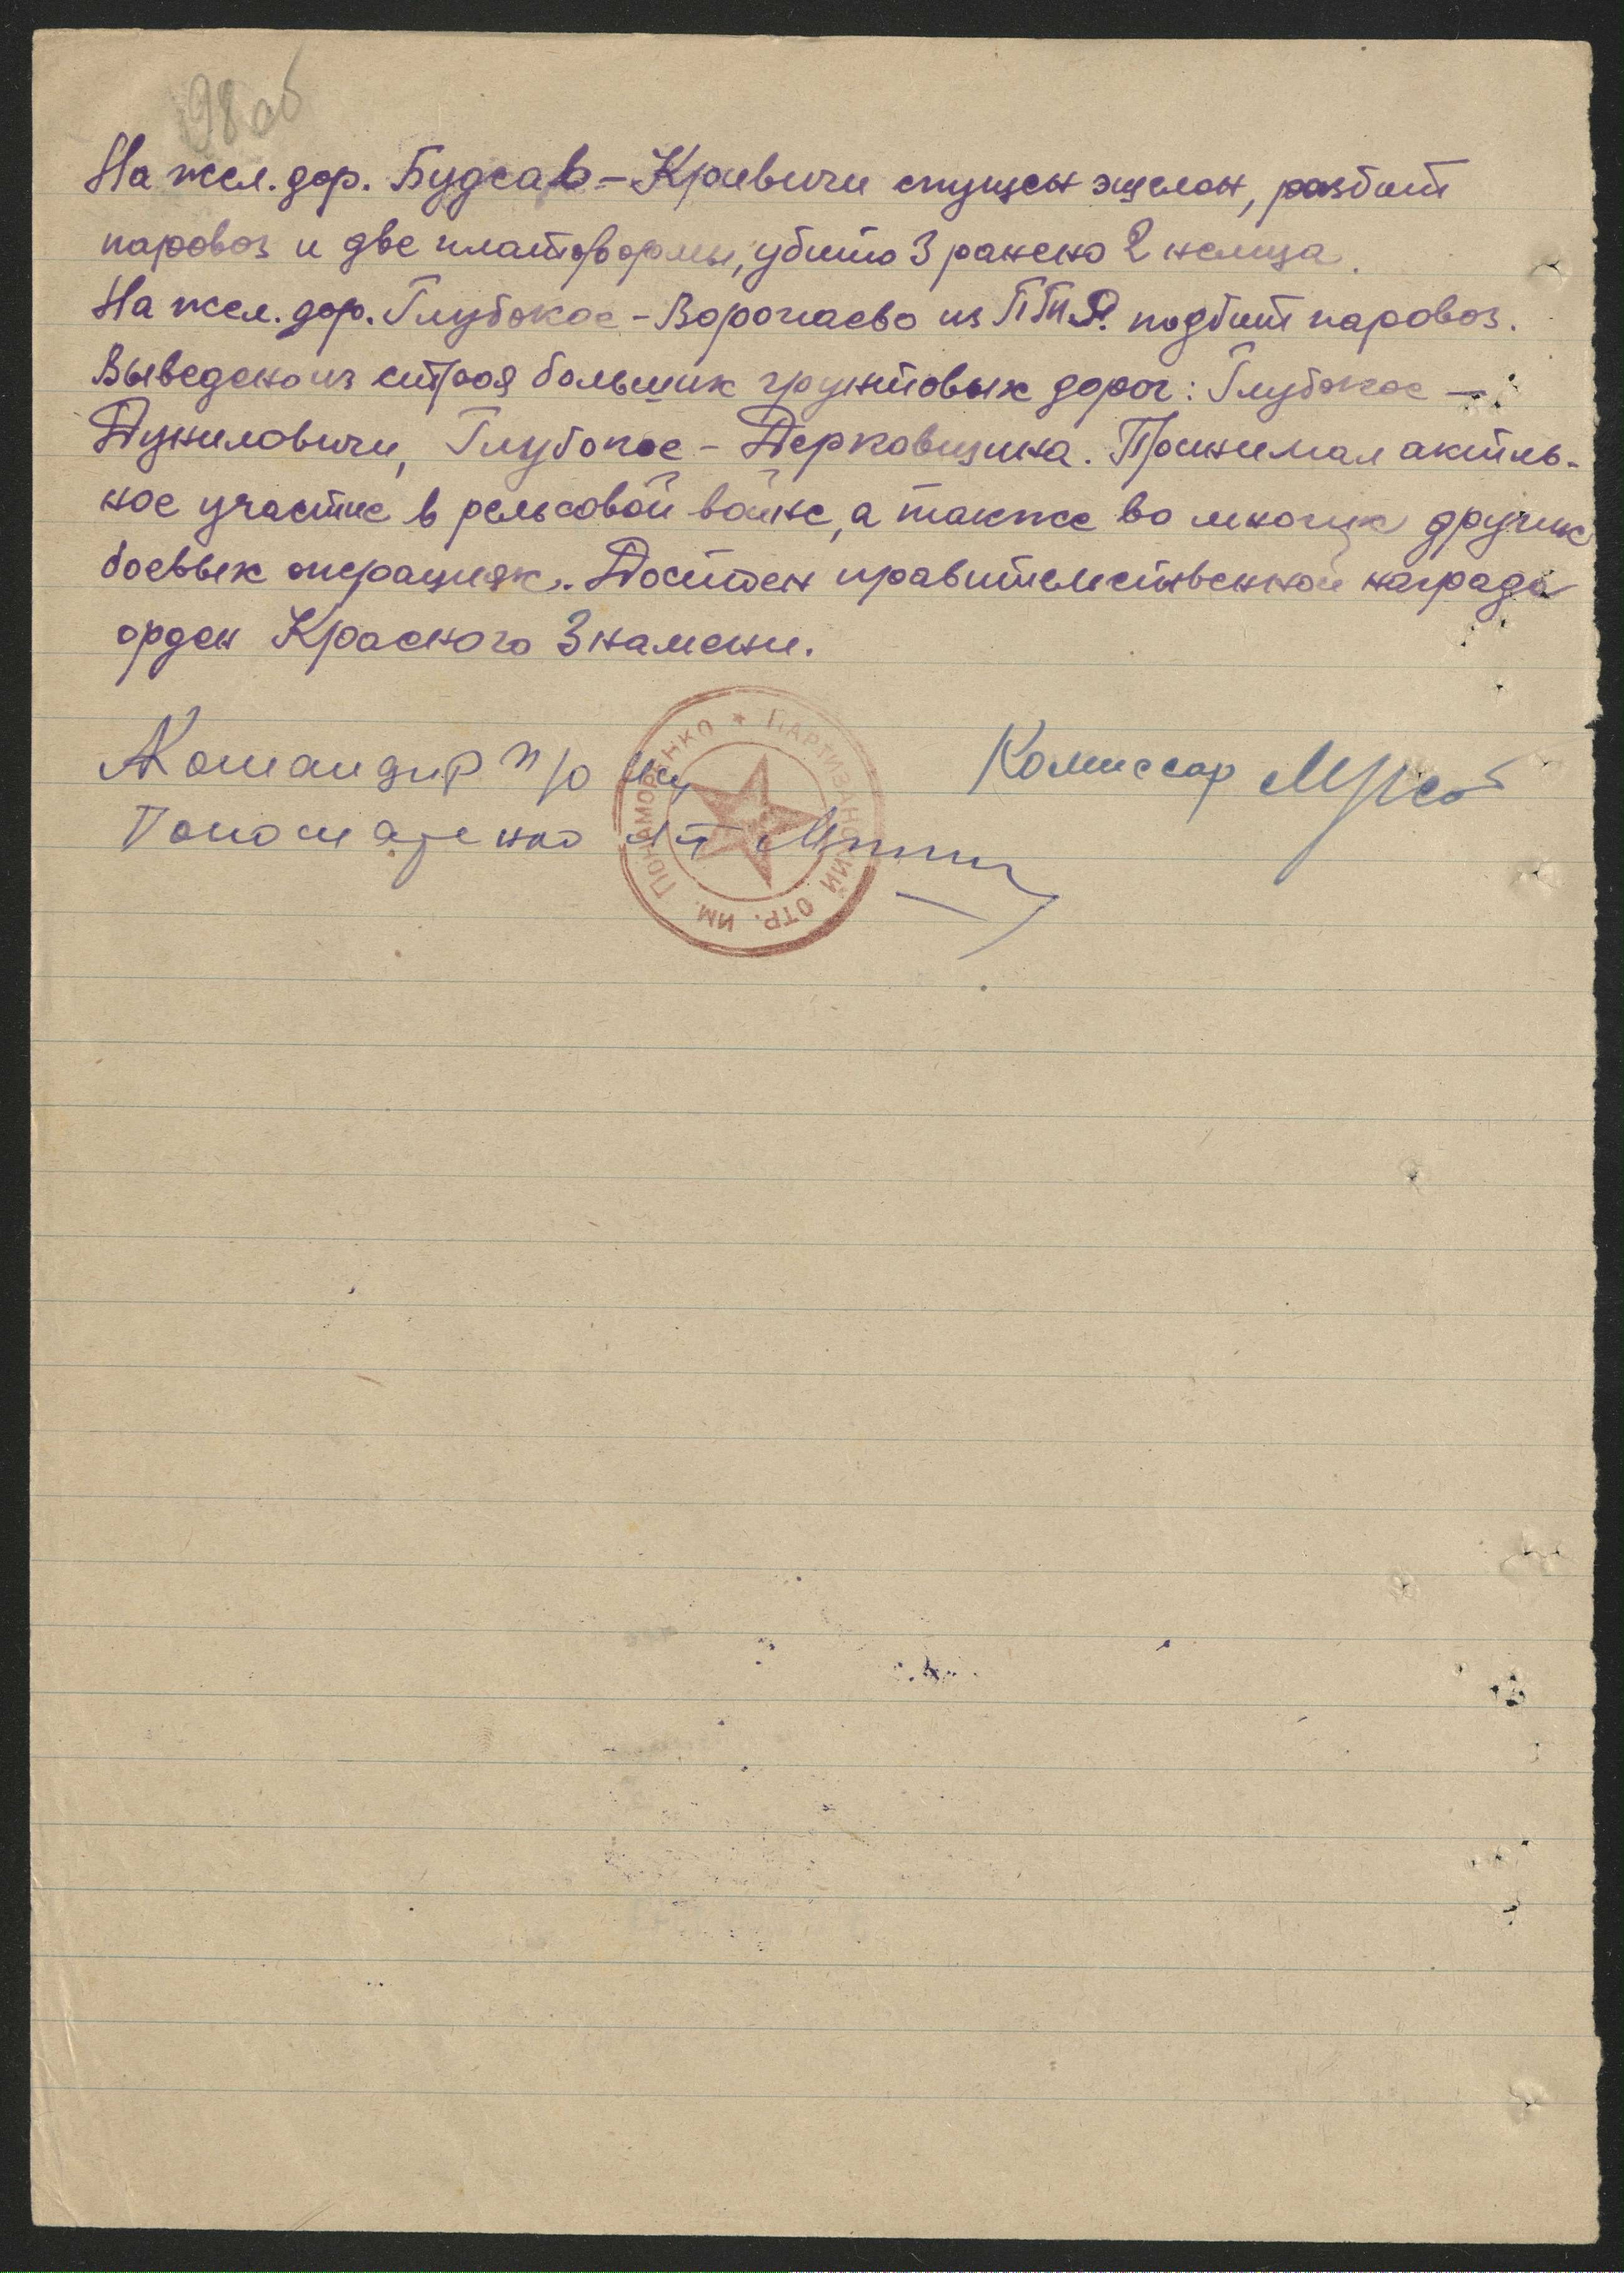 98об
На жел. дор. Будсав – Кривичи спущен эшелон, разбит
паровоз и две платформы, убито 3 ранено 2 немца.
На жел. дор. Глубокое – Воропаево из ПТР. подбит паровоз.
Выведено из строя больших грунтовых дорог: Глубокое –
Дуниловичи, Глубокое – Дерковщина. Принимал актив-
ное участие в рельсовой войне, а также во многих других
боевых операциях. Достоен правительственной награды
орден Красного Знамени.
Командир п/о им Комиссар
Пономаренко л-т
ПАРТИЗАНСКИЙ ОТР. ИМ. ПОНАМОРЕНКО